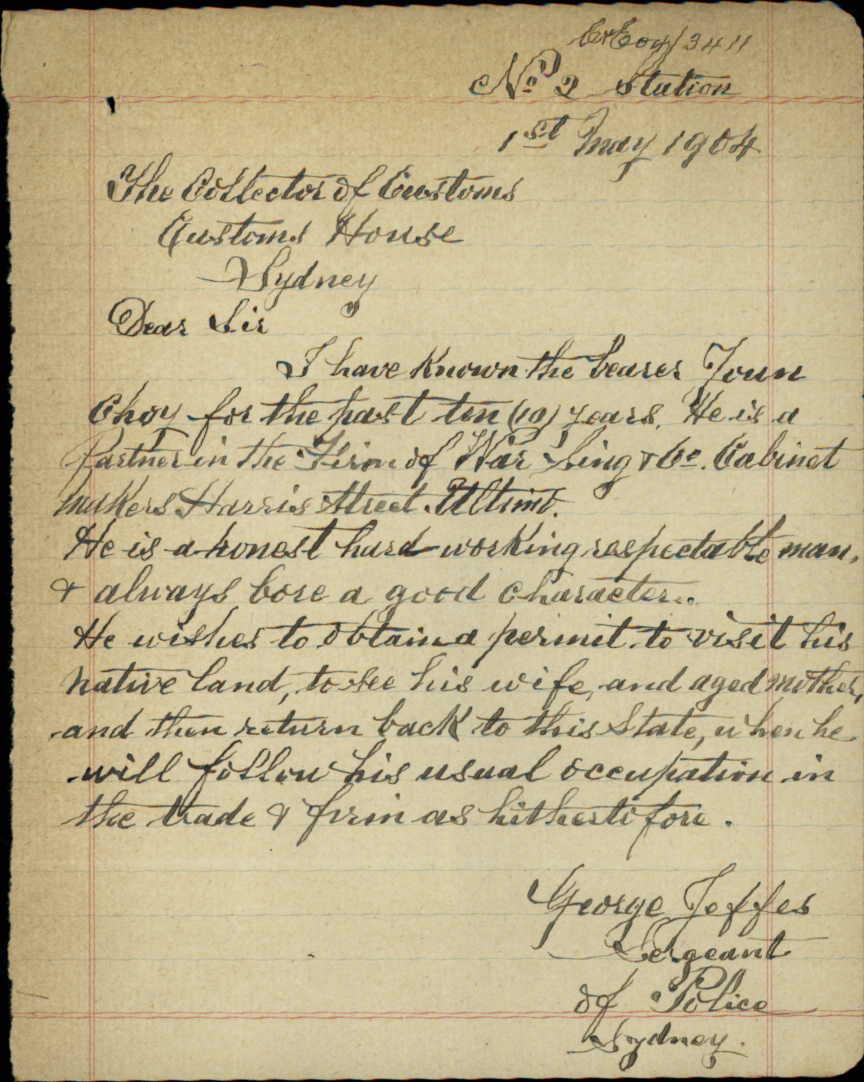 C04/3411
No 2 Station
1st May 1904
The Collector of Customs
Customs House
Sydney
Dear Sir
I have known the bearer Joun
Choy for the past ten (10) years. He is a
Partner in the Firm of War Sing & Co. Cabinet
makers Harris Street. Ultimo.
He is a honest hard working respectable man,
& always bore a good character.
He wishes to obtain a permit to visit his
native land, to see his wife, and aged mother,
and then return back to this State, when he
will follow his usual occupation in
the trade & firm as hithertofore.
George Jeffes
Sergeant
of Police
Sydney.